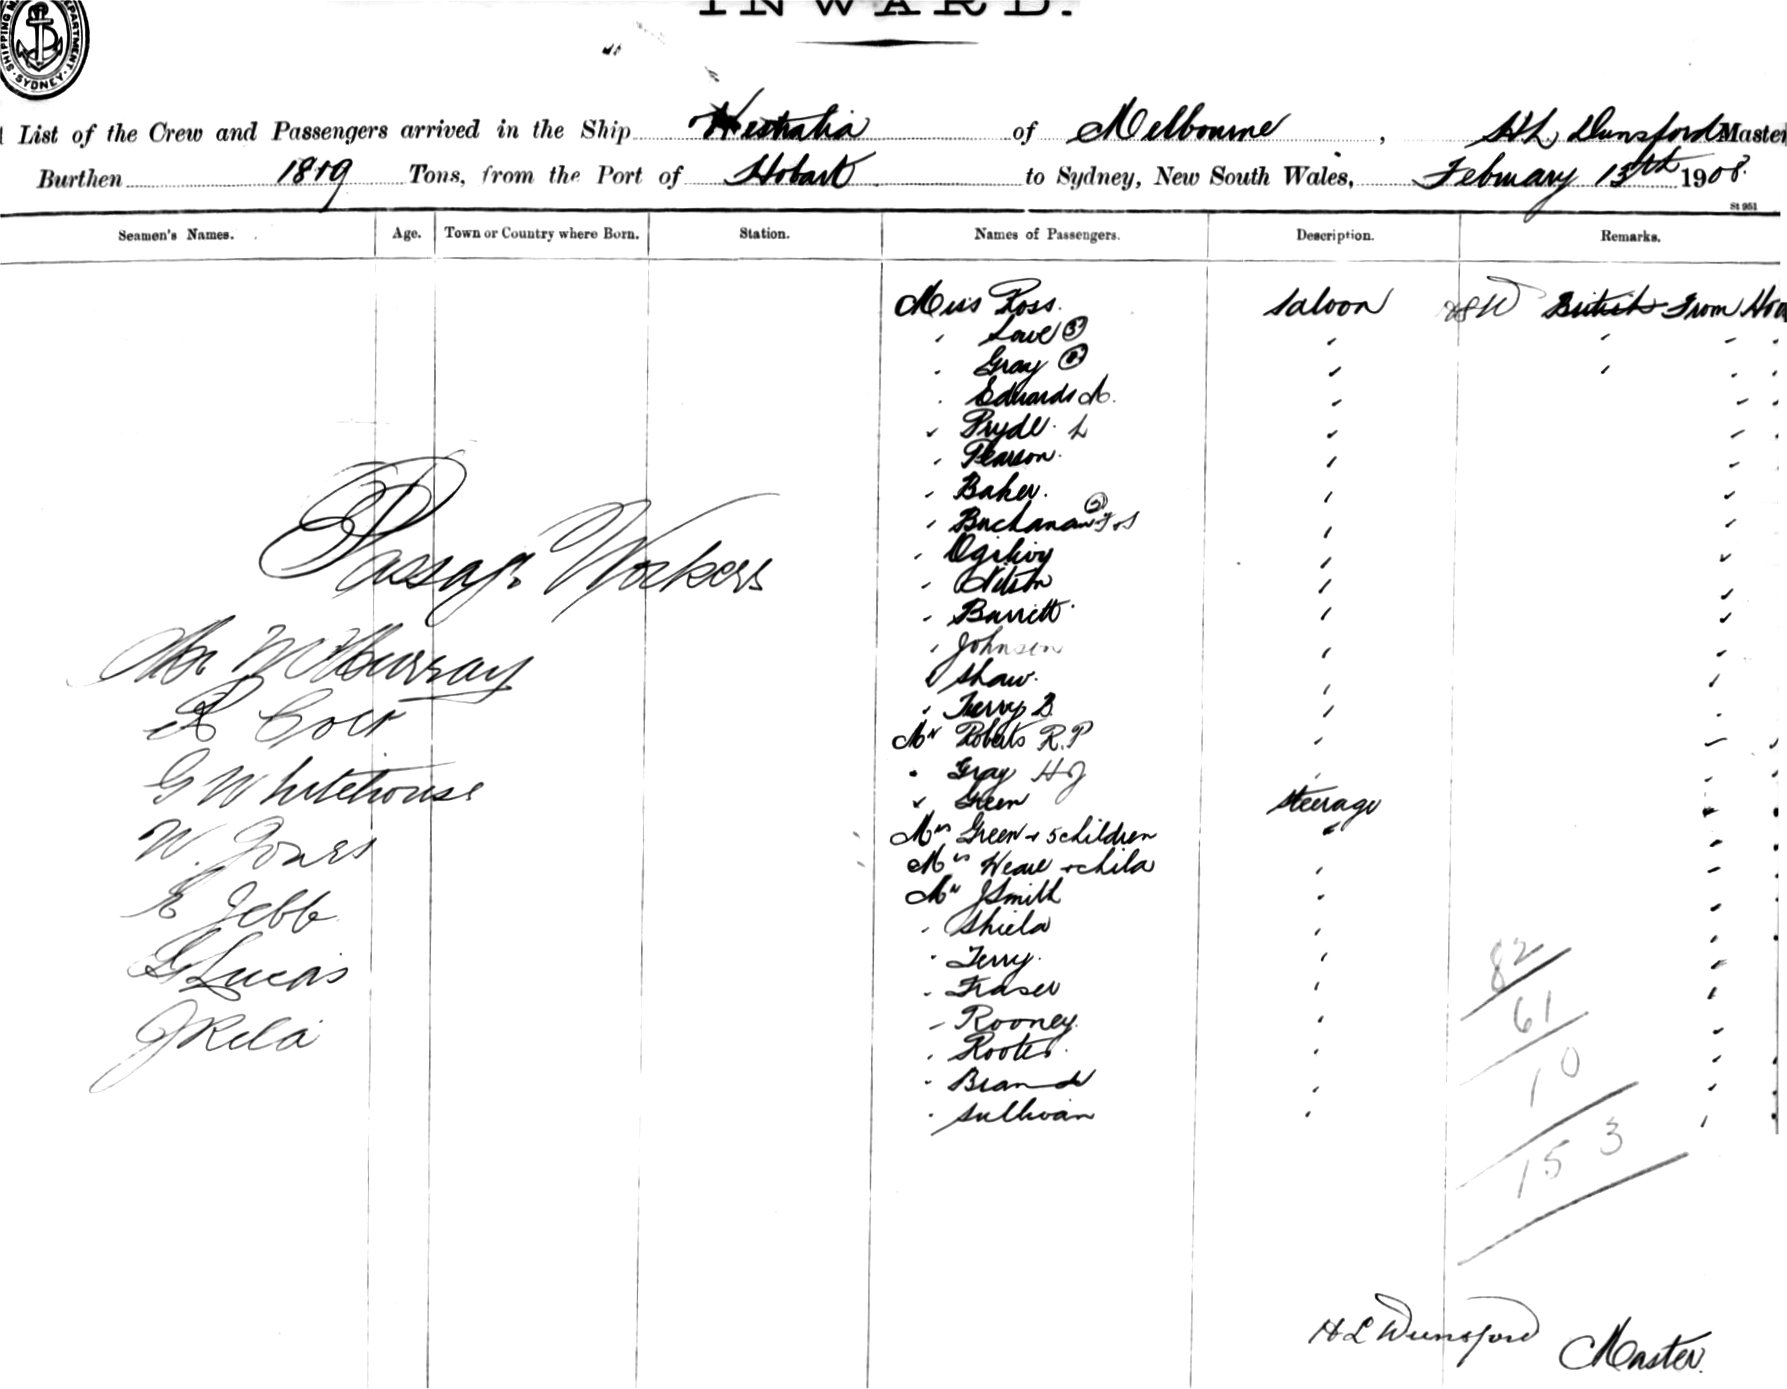 INWARD.
SHIPPING M DEPARTMENT SYDNEY
List of the Crew and Passengers arrived in the Ship Westralia of Melbourne, HL Dunsford Master
Burthen 1819 Tons, from the Port of Hobart to Sydney, New South Wales, February 13th 1908.
St 951
Seamen's Names. Age. Town or Country where Born. Station. Names of Passengers. Description. Remarks.
Miss Ross. Saloon NSW British From
" Lowe (3)
" Gray (2)
" Edwards A.
" Pryde. L
" Pearson.
" Baker.
" Buchanan (2)
" Ogilvy
" Nilson
" Barrett.
" Johnson
" Shaw.
" Terry B.
Mr Roberts R.P
" Gray HJ
" Green Steerage
Mrs Green + 5 children
Mrs Weare + child
Mr J Smith
" Shiela
" Terry.
" Fraser
" Rooney.
" Rootes.
" Brand
" Sullivan
Passage Workers
Mr McMurray
G Whitehouse
W. Jones
E Jebb
G Lucas
82
61
10
153
H L Dunsford Master.